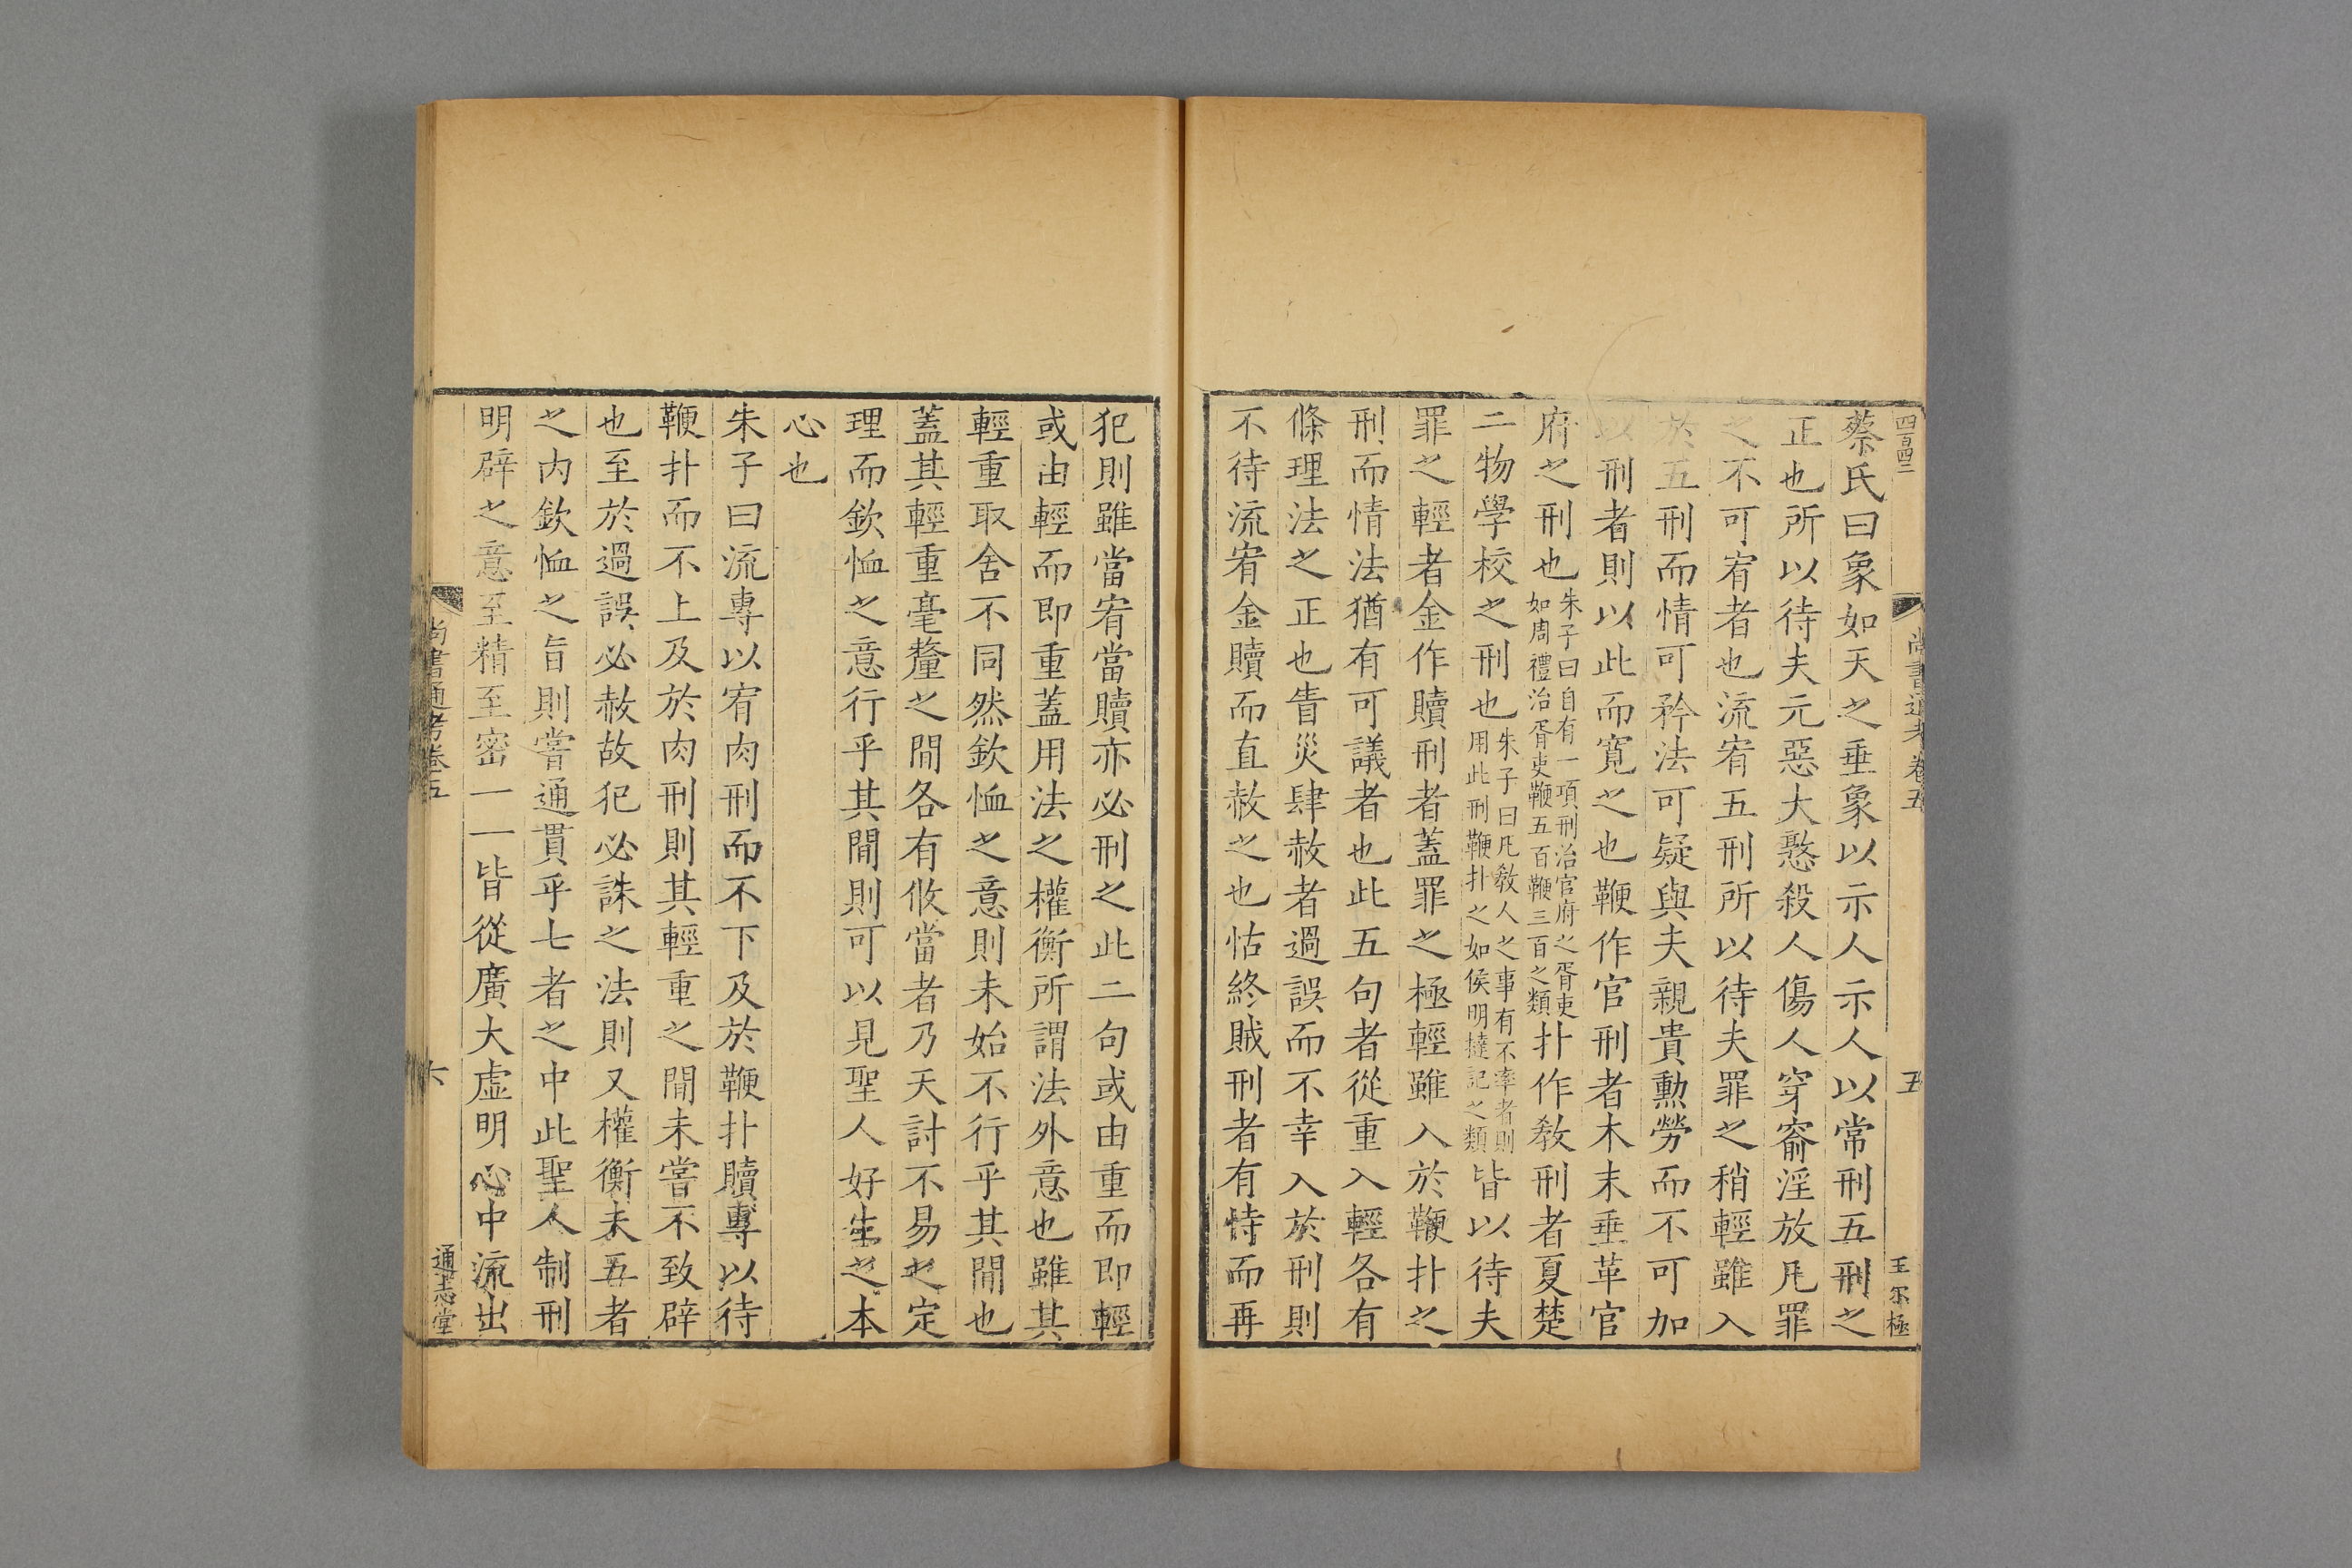 四百四二
尚書通考卷五
五
王尔極
蔡氏曰象如天之垂象以示人示人以常刑五刑之
正也所以待夫元惡大憝殺人傷人穿窬淫放凡罪
之不可宥者也流宥五刑所以待夫罪之稍輕雖入
於五刑而情可矜法可疑與夫親貴勲勞而不可加
以刑者則以此而寛之也鞭作官刑者木末垂革官
府之刑也朱子曰自有一項刑治官府之胥吏如周禮治胥吏鞭五百鞭三百之類扑作敎刑者夏楚
二物學校之刑也朱子曰凡敎人之事有不率者則用此刑鞭扑之如侯明撻記之類皆以待夫
罪之輕者金作贖刑者蓋罪之極輕雖入於鞭扑之
刑而情法猶有可議者也此五句者從重入輕各有
條理法之正也眚災肆赦者過誤而不幸入於刑則
不待流宥金贖而直赦之也怙終賊刑者有恃而再
犯則雖當宥當贖亦必刑之此二句或由重而即輕
或由輕而即重蓋用法之權衡所謂法外意也雖其
輕重取舍不同然欽恤之意則未始不行乎其間也
蓋其輕重毫釐之間各有攸當者乃天討不易之定
理而欽恤之意行乎其間則可以見聖人好生之本
心也
朱子曰流專以宥肉刑而不下及於鞭扑贖專以待
鞭扑而不上及於肉刑則其輕重之間未嘗不致辟
也至於過誤必赦故犯必誅之法則又權衡夫五者
之内欽恤之旨則嘗通貫乎七者之中此聖人制刑
明辟之意至精至密一一皆從廣大虚明心中流出
尚書通考卷五
六
通志堂